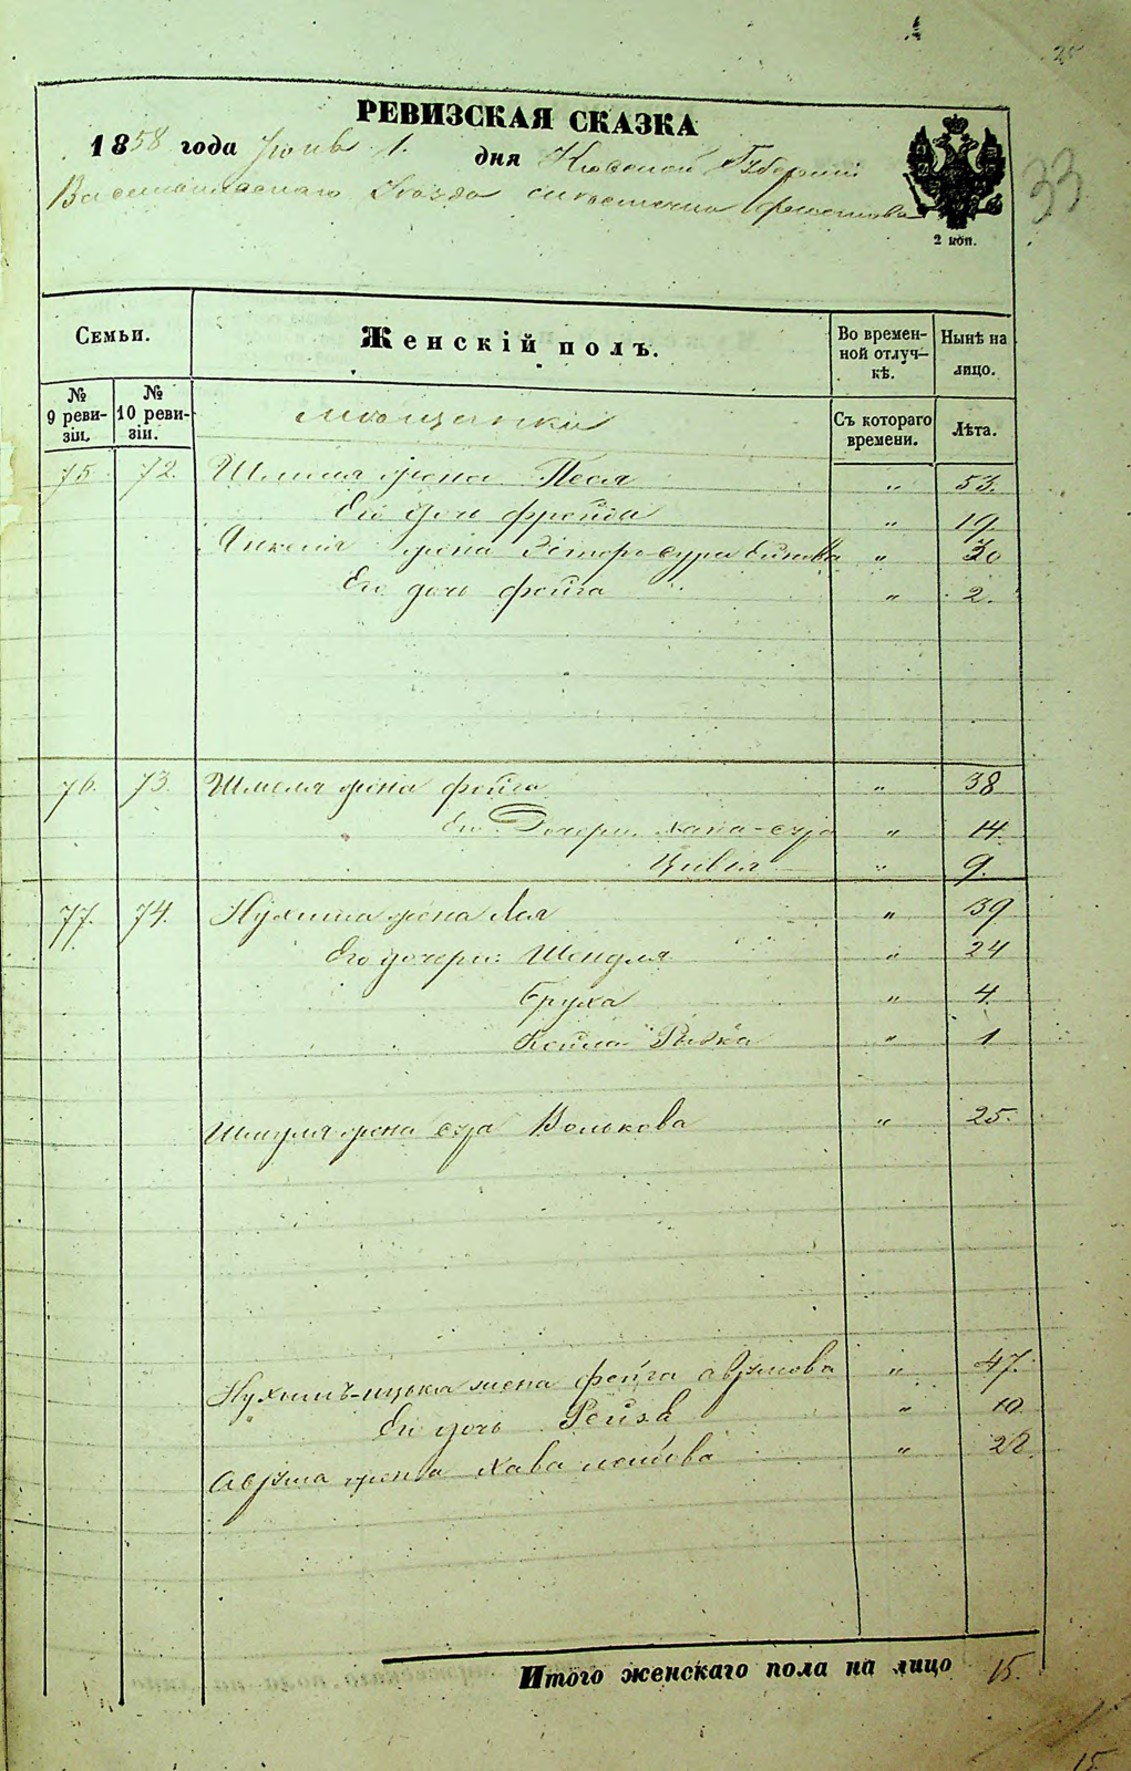 33
РЕВИЗСКАЯ СКАЗКА
1858 года Июнь 1. дня Кіевской Губерніи
Васильковскаго Уѣзда мѣстечка Фастова
2 коп.
Семьи.
Женскій полъ.
Во времен-
ной отлуч-
кѣ.
Нынѣ на
лицо.
№
9 реви-
зіи.
№
10 реви-
зіи.
мѣщанки
Съ котораго
времени.
Лѣта.
75. 72. Шмиля жена Песя " 53.
Его дочь Фрейда " 19.
Янкеля жена Эстеръ-сура " 30
Его дочь Фейга " 2.
76. 73. Шмеля жена Фейга " 38
Его Дочери. Хана-сура " 14.
Цивья " 9.
77. 74. Нухима жена Лея " 39
Его дочери: Шендля " 24
Бруха " 4.
Кейла Рывка " 1
жена сура Волькова " 25.
Нухимъ-ицька жена Фейга Аврумова " 47.
Его дочь Рейза " 10
Аврума жена Хава " 22.
Итого женскаго пола на лицо 15.
15.